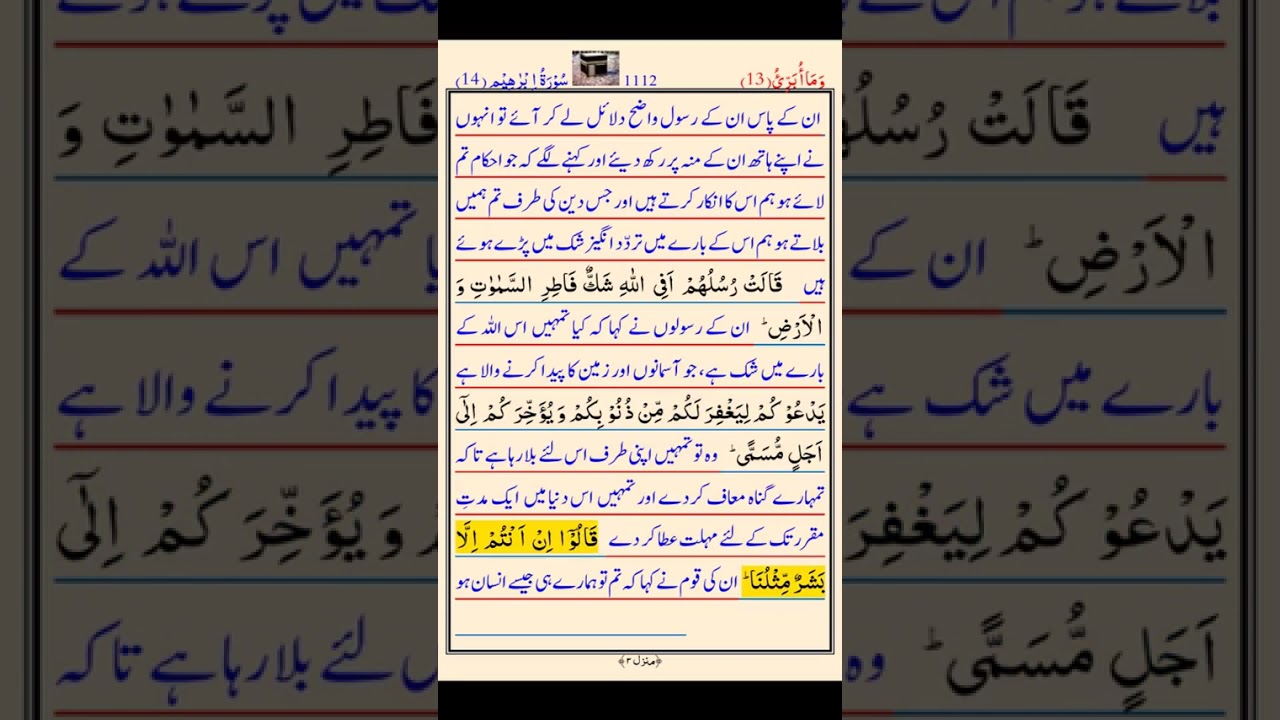 وَمَاۤ اُبَرِّئُ (13) 1112 سُوْرَةُ اِبْرٰهِيْم (14)
ان کے پاس ان کے رسول واضح دلائل لے کر آئے تو انہوں
نے اپنے ہاتھ ان کے منہ پر رکھ دیئے اور کہنے لگے کہ جو احکام تم
لائے ہو ہم اس کا انکار کرتے ہیں اور جس دین کی طرف تم ہمیں
بلاتے ہو ہم اس کے بارے میں تردّد انگیز شک میں پڑے ہوئے
ہیں قَالَتْ رُسُلُهُمْ اَفِی اللّٰهِ شَكٌّ فَاطِرِ السَّمٰوٰتِ وَ
الْاَرْضِ ؕ ان کے رسولوں نے کہا کہ کیا تمہیں اس اللہ کے
بارے میں شک ہے، جو آسمانوں اور زمین کا پیدا کرنے والا ہے
یَدْعُوْ كُمْ لِیَغْفِرَ لَكُمْ مِّنْ ذُنُوْ بِكُمْ وَ یُؤَخِّرَ كُمْ اِلٰۤی
اَجَلٍ مُّسَمًّی ؕ وہ تو تمہیں اپنی طرف اس لئے بلا رہا ہے تا کہ
تمہارے گناہ معاف کر دے اور تمہیں اس دنیا میں ایک مدتِ
مقرر تک کے لئے مہلت عطا کر دے قَالُوْۤا اِنْ اَنْتُمْ اِلَّا
بَشَرٌ مِّثْلُنَا ؕ ان کی قوم نے کہا کہ تم تو ہمارے ہی جیسے انسان ہو
﴿منزل ۳﴾